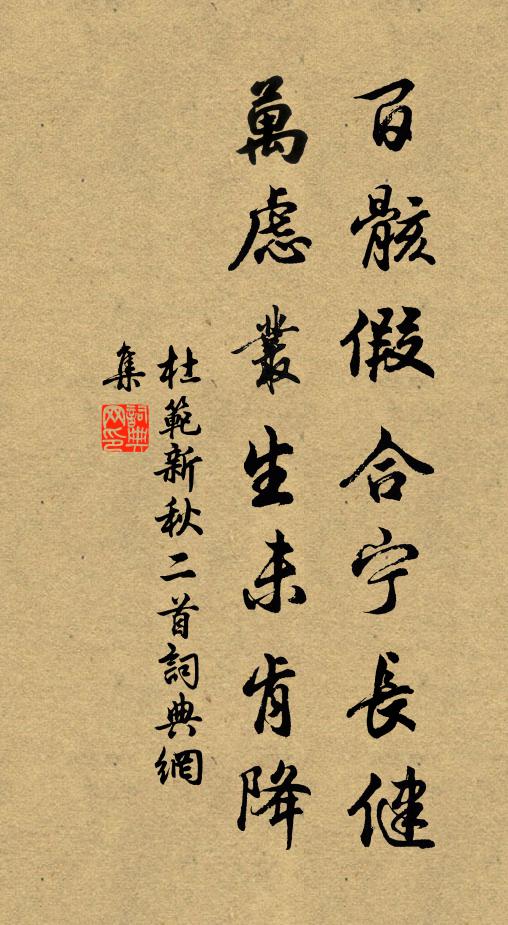 百骸假合宁長健
萬慮叢生未肯降
杜範新秋二首詞典網
集
詞典
网印